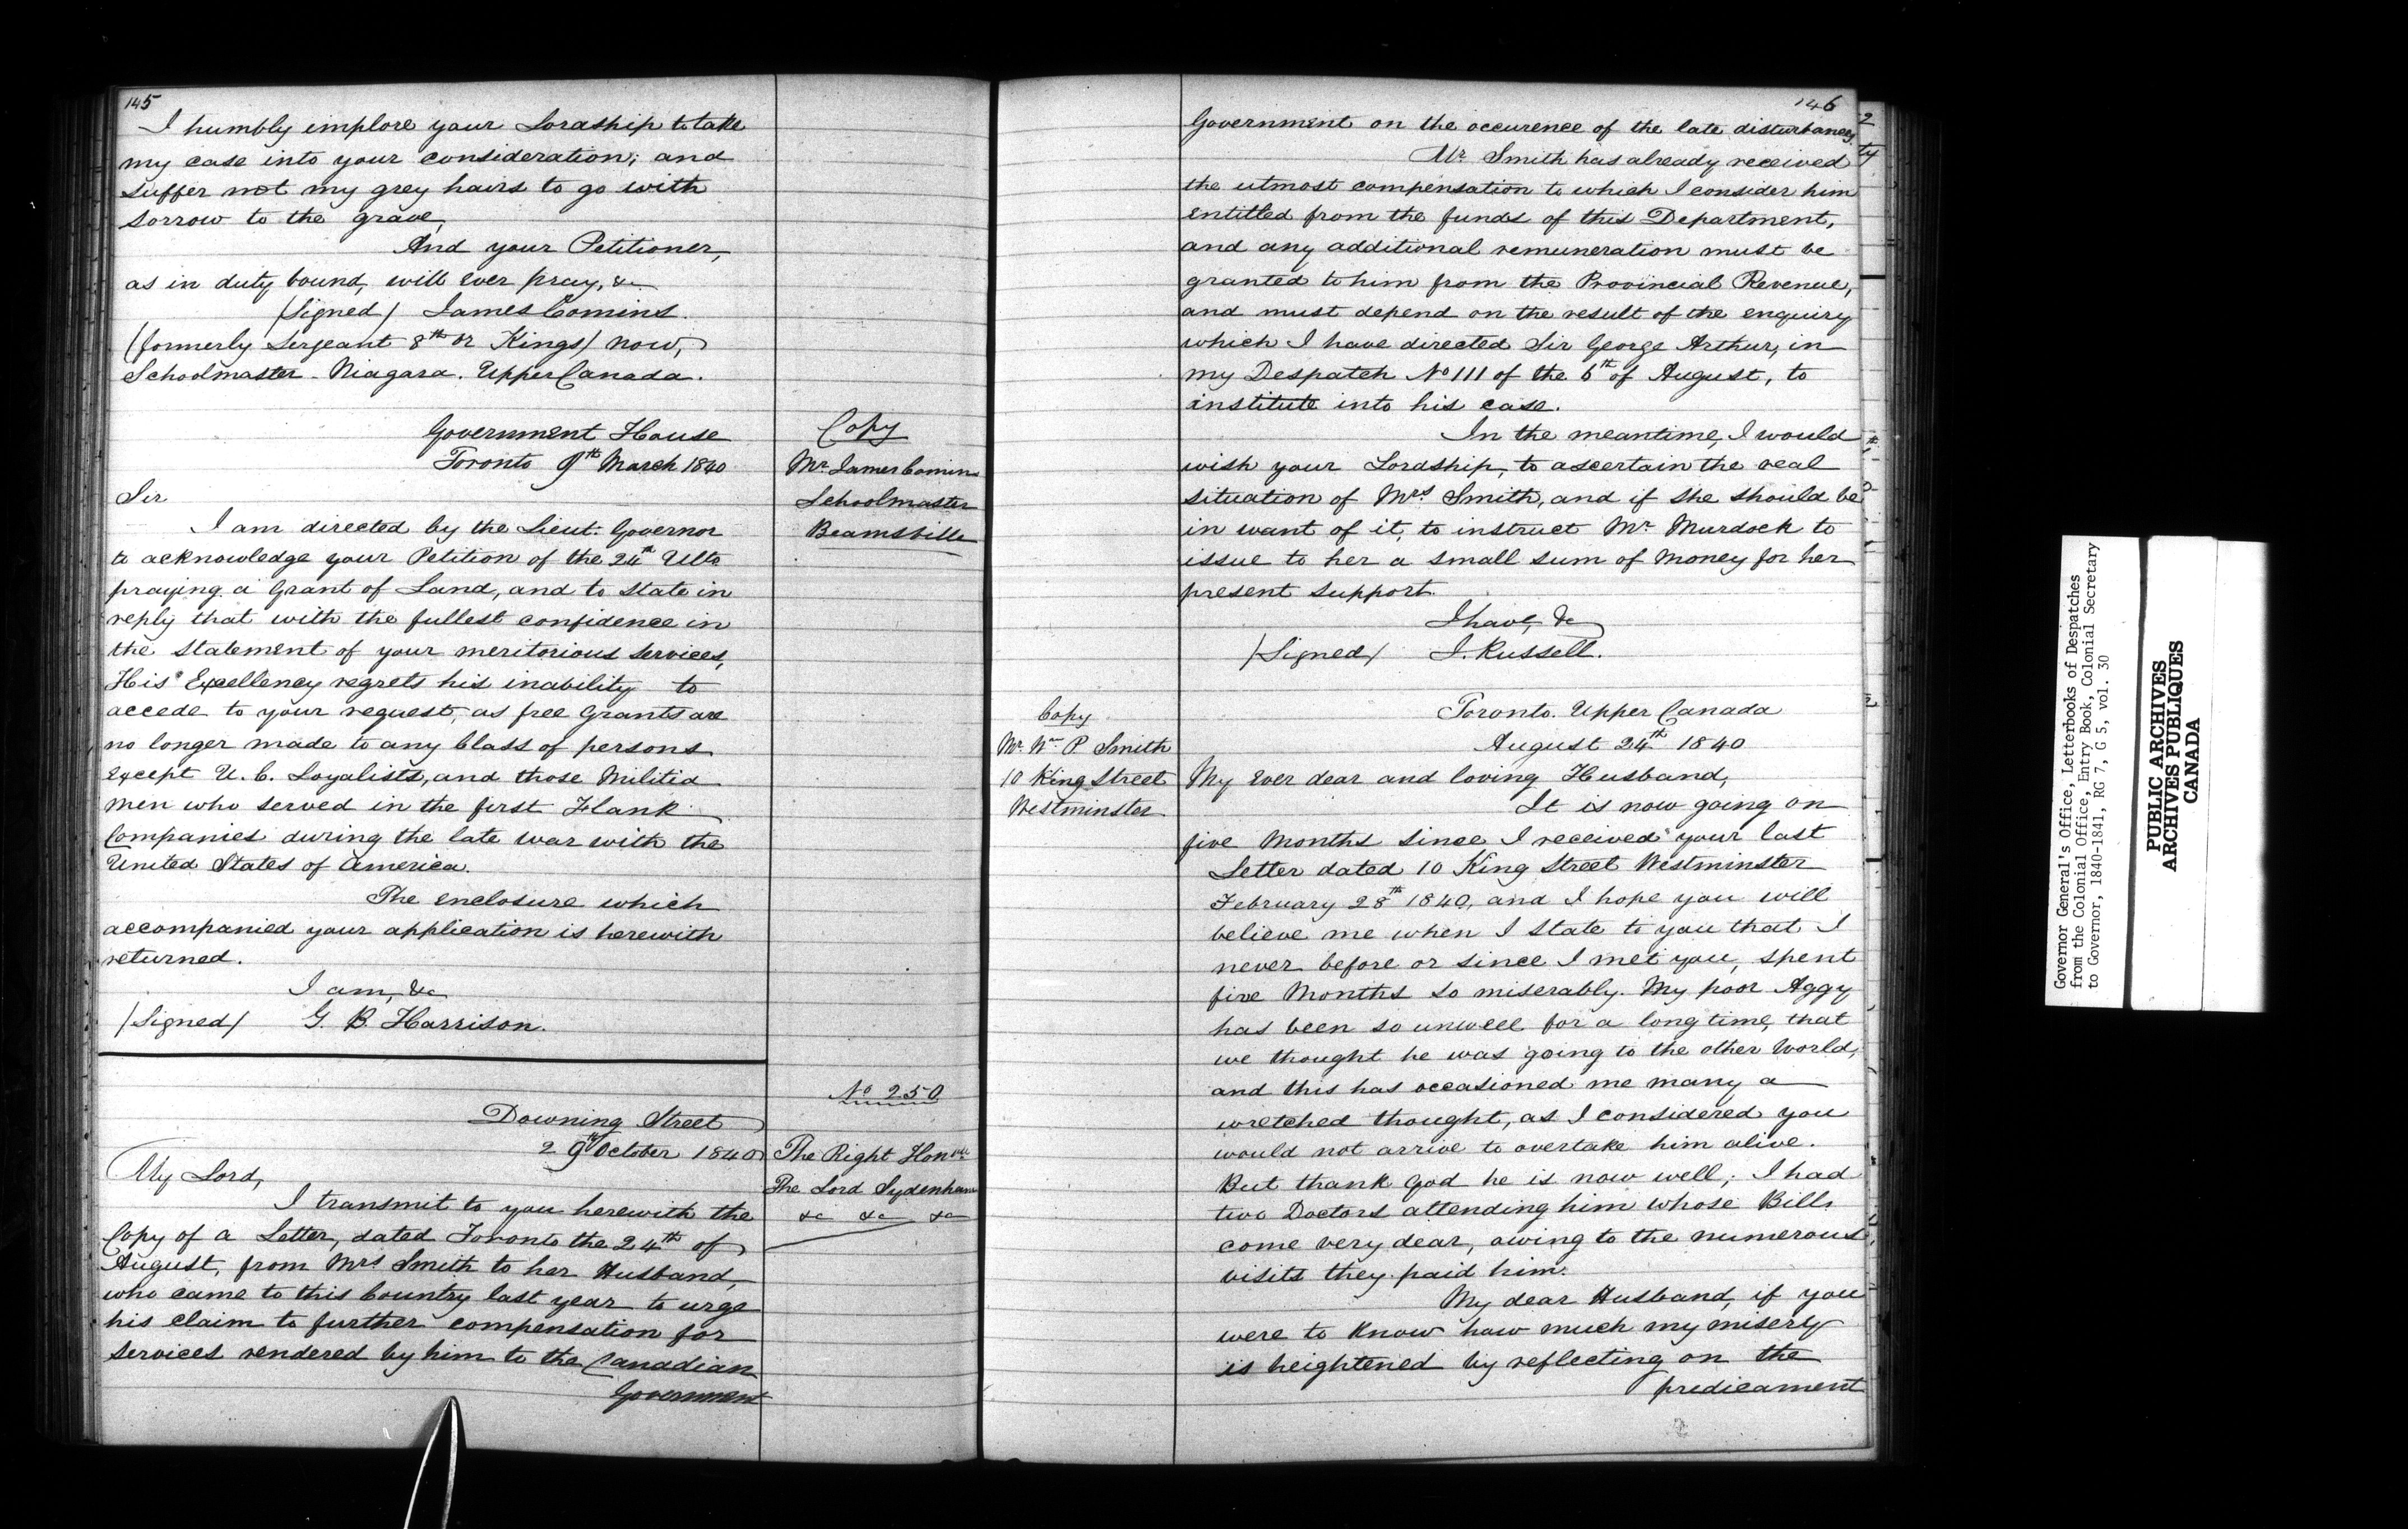 145
I humbly implore your Lordship to take
my case into your consideration; and
suffer not my grey hairs to go with
sorrow to the grave,
And your Petitioner,
as in duty bound, will ever pray, &c
/Signed/ James Comins.
/formerly Sergeant 8th or Kings/ now,
Schoolmaster - Niagara. Upper Canada.
Government House
Toronto 9th March 1840
Copy
Mr James Comins
Schoolmaster
Beamsville
Sir
I am directed by the Lieut. Governor
to acknowledge your Petition of the 24th Ulto
praying a Grant of Land, and to state in
reply that with the fullest confidence in
the statement of your meritorious services,
His Excellency regrets his inability to
accede to your request, as free Grants are
no longer made to any Class of persons
except U. E. Loyalists, and those Militia
men who served in the first Flank
Companies during the late war with the
United States of America.
The enclosure which
accompanied your application is herewith
returned.
I am, &c
/Signed/ G. B. Harrison.
No 250
Downing Street
29th October 1840
The Right Honble
The Lord Sydenham
&c &c &c
My Lord,
I transmit to you herewith the
Copy of a Letter, dated Toronto the 24th of
August, from Mrs Smith to her Husband,
who came to this Country last year to urge
his claim to further compensation for
services rendered by him to the Canadian
Government
146
Government on the occurence of the late disturbances.
Mr Smith has already received
the utmost compensation to which I consider him
entitled from the funds of this Department,
and any additional remuneration must be
granted to him from the Provincial Revenue,
and must depend on the result of the enquiry
which I have directed Sir George Arthur, in
my Despatch No 111 of the 6th of August, to
institute into his case.
In the meantime, I would
wish your Lordship, to ascertain the real
situation of Mrs Smith, and if she should be
in want of it, to instruct Mr Murdock to
issue to her a small sum of money for her
present support.
I have, &c
/Signed/ J. Russell.
Copy
Mr Wm P Smith
10 King Street
Westminster
Toronto. Upper Canada
August 24th 1840
My ever dear and loving Husband,
It is now going on
five months since I received your last
Letter dated 10 King Street Westminster
February 28th 1840, and I hope you will
believe me when I state to you that I
never before or since I met you, spent
five months so miserably. My poor Aggy
has been so unwell for a long time, that
we thought he was going to the other World,
and this has occasioned me many a
wretched thought, as I considered you
would not arrive to overtake him alive.
But thank God he is now well; I had
two Doctors attending him whose Bills
come very dear, owing to the numerous
visits they paid him.
My dear Husband, if you
were to know how much my misery
is heightened by reflecting on the
predicament
Governor General's Office, Letterbooks of Despatches
from the Colonial Office, Entry Book, Colonial Secretary
to Governor, 1840-1841, RG 7, G 5, vol. 30
PUBLIC ARCHIVES
ARCHIVES PUBLIQUES
CANADA